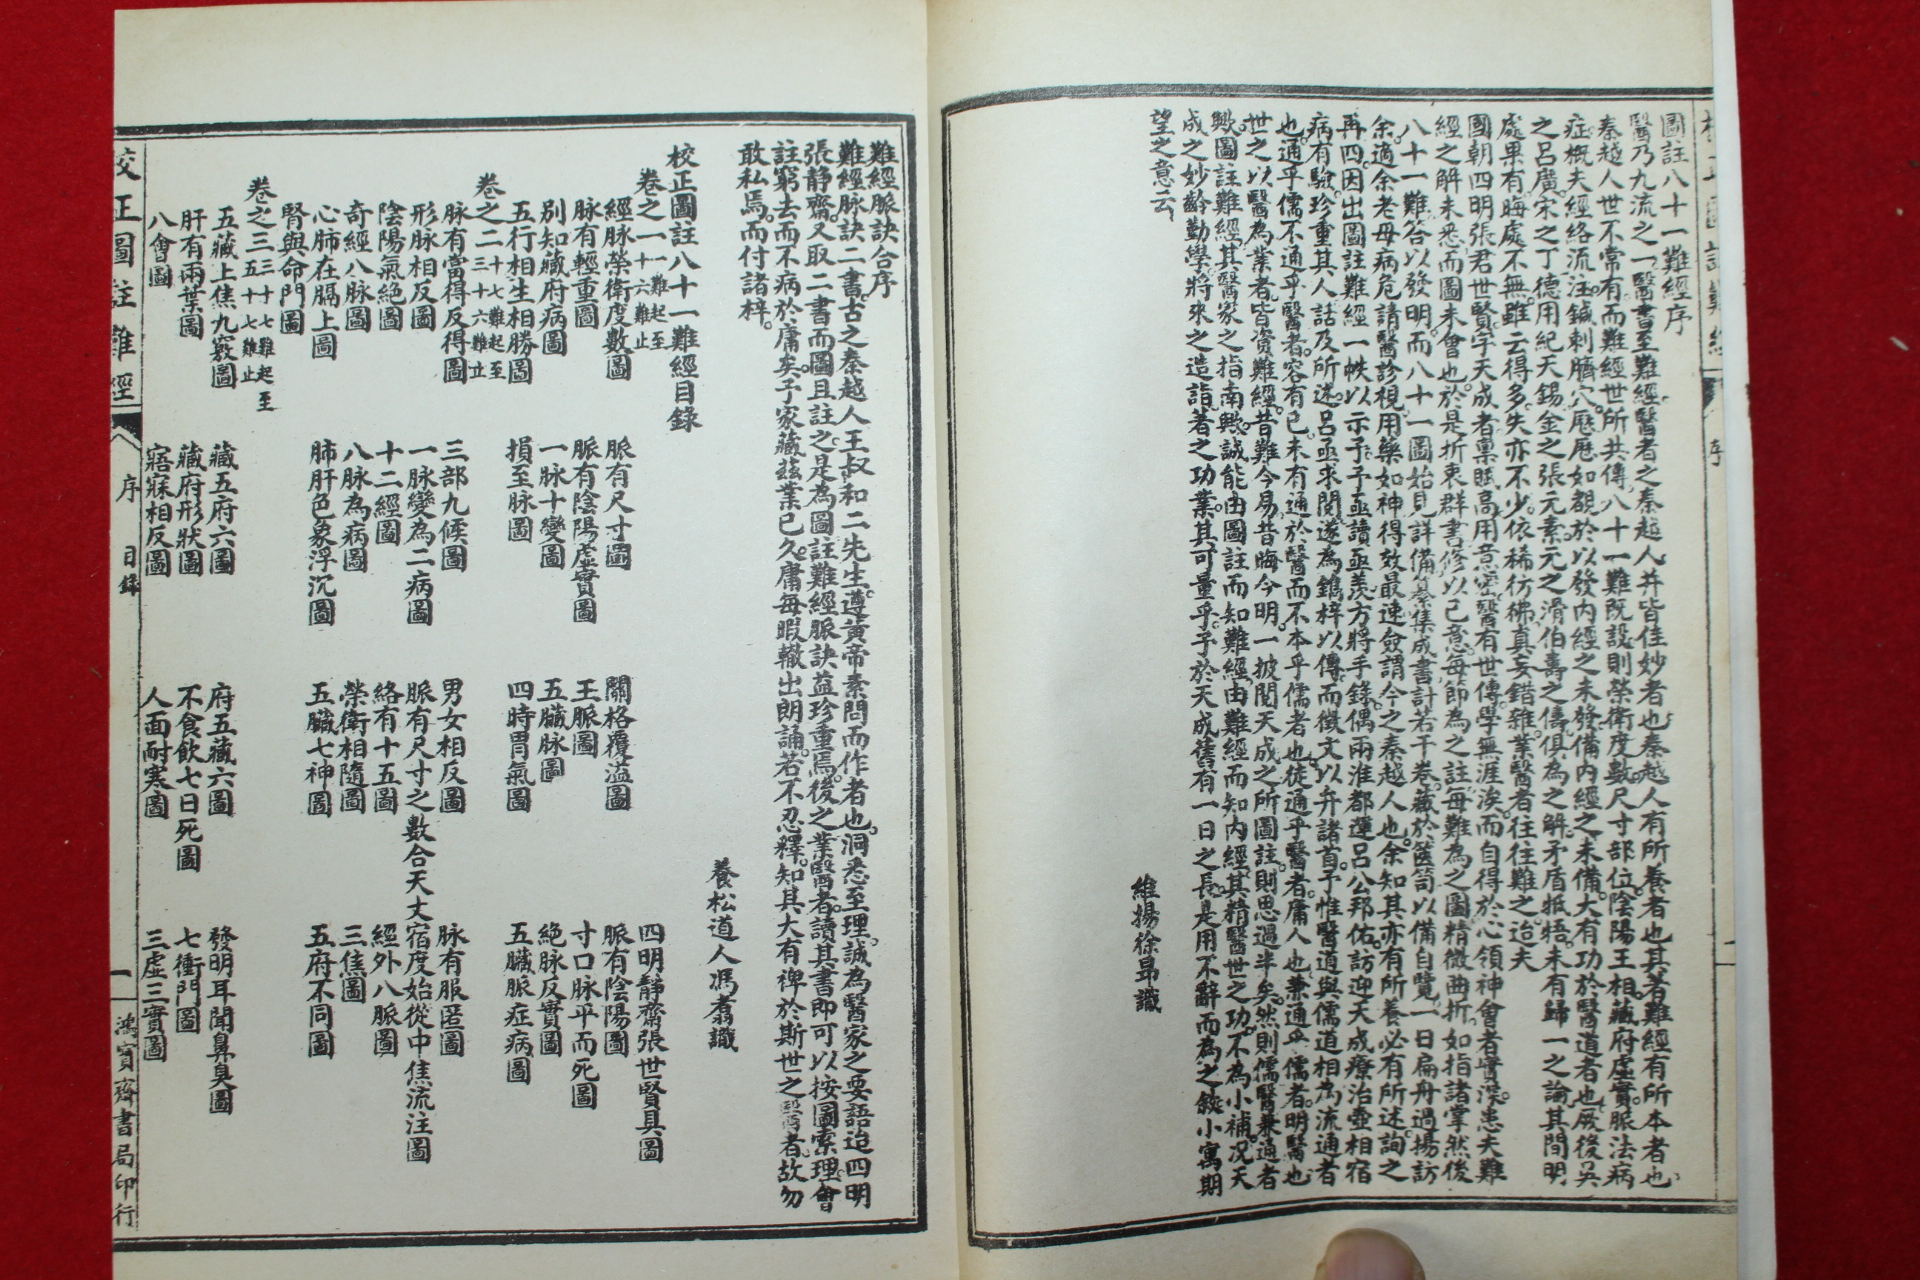 圖註八十一難經序
醫乃九流之一醫書至難經醫者之秦越人幷皆佳妙者也秦越人有所養者也其著難經有所本者也
秦越人世不常有而難經世所共傳八十一難既設則榮衛度數尺寸部位陰陽王相藏府虛實脈法病
症概夫經絡流注鍼刺臍穴歷歷如覩於以發內經之未發備內經之未備大有功於醫道者也厥後吳
之呂廣宋之丁德用紀天錫金之張元素元之滑伯壽之儔俱為之解矛盾抵牾未有歸一之論其間明
處果有晦處不無雖云得多失亦不少依稀彷彿真妄錯雜業醫者往往難之迨夫
國朝四明張君世賢字天成者稟賦高用意密醫有世傳學無涯涘而自得於心領神會者實深患夫難
經之解未悉而圖未會也於是折衷群書修以己意每節為之註每難為之圖精微曲折如指諸掌然後
八十一難答以發明而八十一圖始見詳備纂集成書計若干卷藏於篋笥以備自覽一日扁舟過揚訪
余適余老母病危請醫診視用藥如神得效最速僉謂今之秦越人也余知其亦有所養必有所述詢之
再四因出圖註難經一帙以示予予亟讀亟羨方將手錄偶兩淮都運呂公邦佑訪迎天成療治壺相宿
病有驗珍重其人話及所述呂丞求閱遂為鐫梓以傳而徵文以弁諸首予惟醫道與儒道相為流通者
也通乎儒不通乎醫者容有已未有通於醫而不本乎儒者也徒通乎醫者庸人也兼通乎儒者明醫也
世之以醫為業者皆資難經昔難今易昔晦今明一披閱天成之所圖註則思過半矣然則儒醫兼通者
歟圖註難經其醫家之指南歟誠能由圖註而知難經由難經而知內經其精醫世之功不為小補況天
成之妙齡勤學將來之造詣著之功業其可量乎予於天成舊有一日之長是用不辭而為之餞小寓期
望之意云
維揚徐昴識
難經脈訣合序
難經脉訣二書古之秦越人王叔和二先生遵黃帝素問而作者也洞悉至理誠為醫家之要語迨四明
張靜齋又取二書而圖且註之是為圖註難經脈訣益珍重焉後之業醫者讀其書即可以按圖索理會
註窮去而不病於庸矣予家藏茲業已久庸每暇輙出朗誦若不忍釋知其大有裨於斯世之醫者故勿
敢私焉而付諸梓
養松道人馮翥識
校正圖註八十一難經目錄
四明靜齋張世賢具圖
卷之一 一難起至十六難止
經脉榮衛度數圖 脈有尺寸圖 關格覆溢圖 脈有陰陽圖
脉有輕重圖 脈有陰陽虛實圖 王脈圖 寸口脉平而死圖
別知藏府病圖 一脉十變圖 五臟脉圖 絕脉反實圖
五行相生相勝圖 損至脉圖 四時胃氣圖 五臟脈症病圖
卷之二 十七難起至三十六難止
脉有當得反得圖 三部九候圖 男女相反圖 脉有服匿圖
形脉相反圖 一脉變為二病圖 脈有尺寸之數合天丈宿度始從中焦流注圖
陰陽氣絕圖 十二經圖 絡有十五圖 經外八脈圖
奇經八脉圖 八脉為病圖 榮衛相隨圖 三焦圖
心肺在膈上圖 肺肝色象浮沉圖 五臟七神圖 五府不同圖
腎與命門圖
卷之三 三十七難起至五十七難止
五藏上焦九竅圖 藏五府六圖 府五藏六圖 發明耳聞鼻臭圖
肝有兩葉圖 藏府形狀圖 不食飲七日死圖 七衝門圖
八會圖 寤寐相反圖 人面耐寒圖 三虛三實圖
校正圖註難經 序 目錄 一 鴻寶齋書局印行